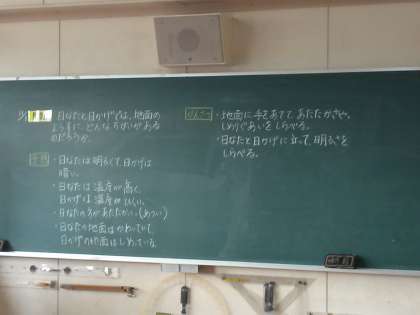 日なたと日かげでは、地面の
ようすに、どんなちがいがある
のだろうか。
予想
・日なたは明るくて、日かげは
暗い。
・日なたは温度が高く、
日かげは温度がひくい。
・日なたの方があたたかい。(あつい)
・日なたの地面はかわいていて、
日かげの地面はしめっている。
・地面に手をあてて、あたたかさや、
しめりぐあいをしらべる。
・日なたと日かげに立って、明るさを
しらべる。